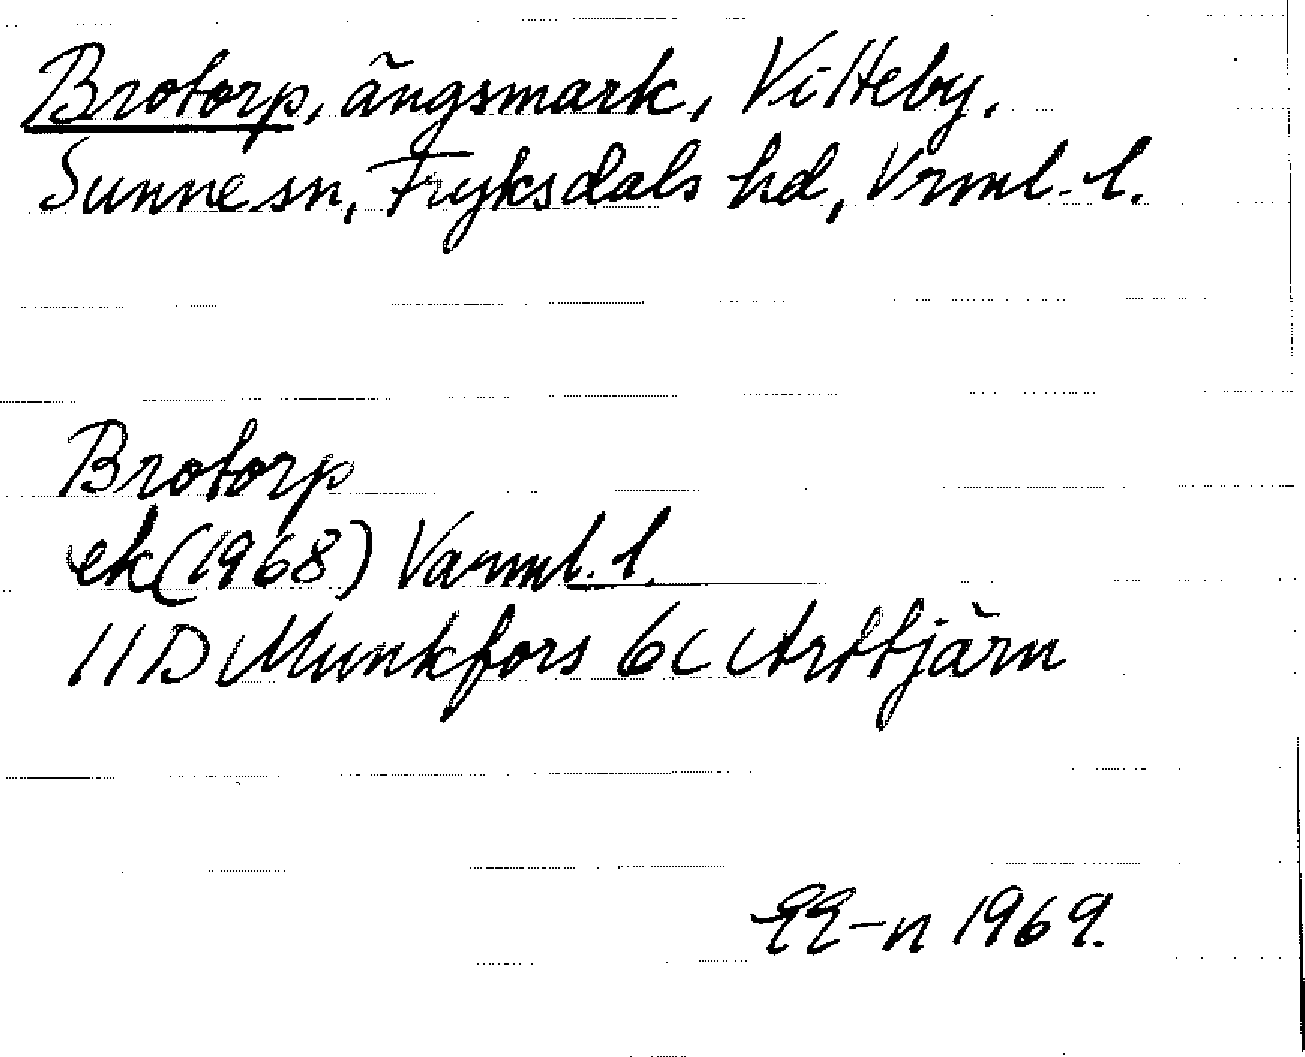 Brotorp, ängsmark, Vitteby,
Sunne sn, Fryksdals hd, Vrml. l.
Brotorp
ek (1968) Värml. l.
11D Munkfors 6c Arttjärn
EE-n 1969.